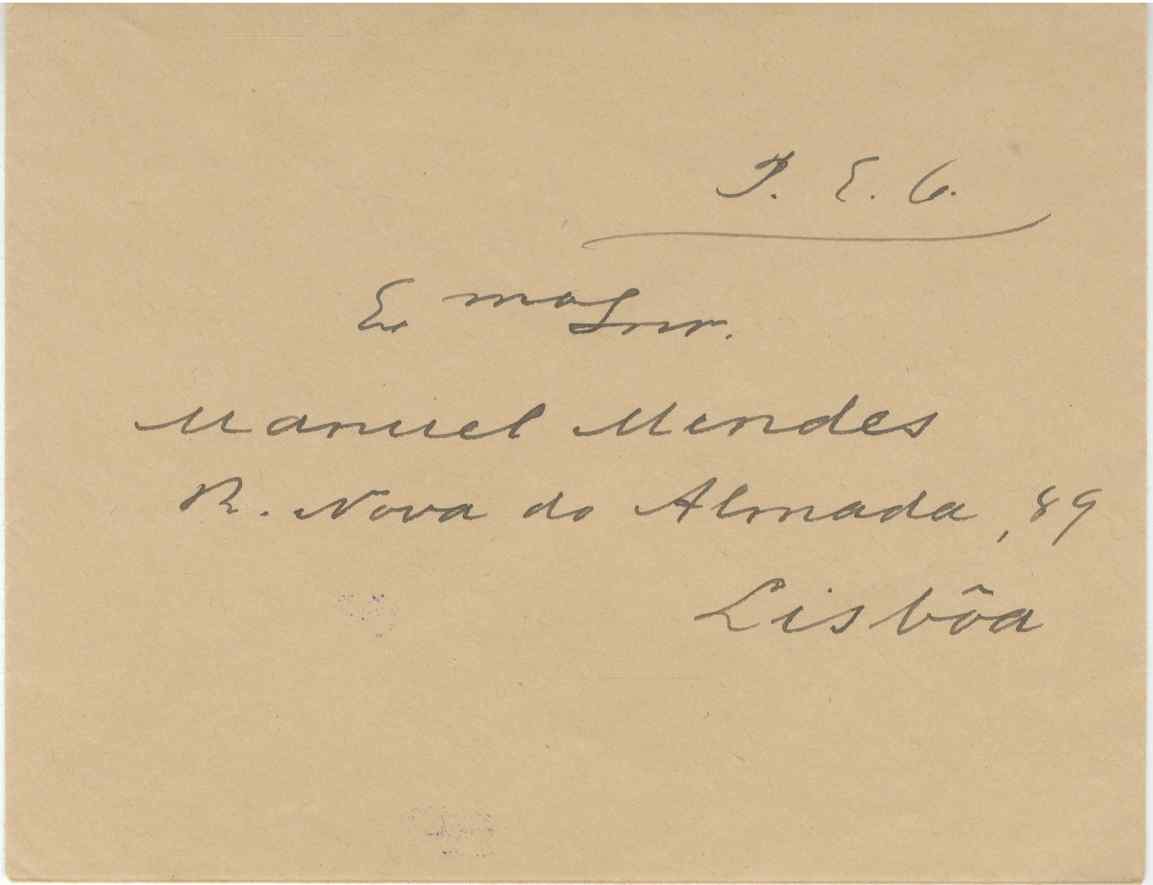 P. E. C.
Exmo Snr.
Manuel Mendes
R. Nova do Almada, 89
Lisbôa